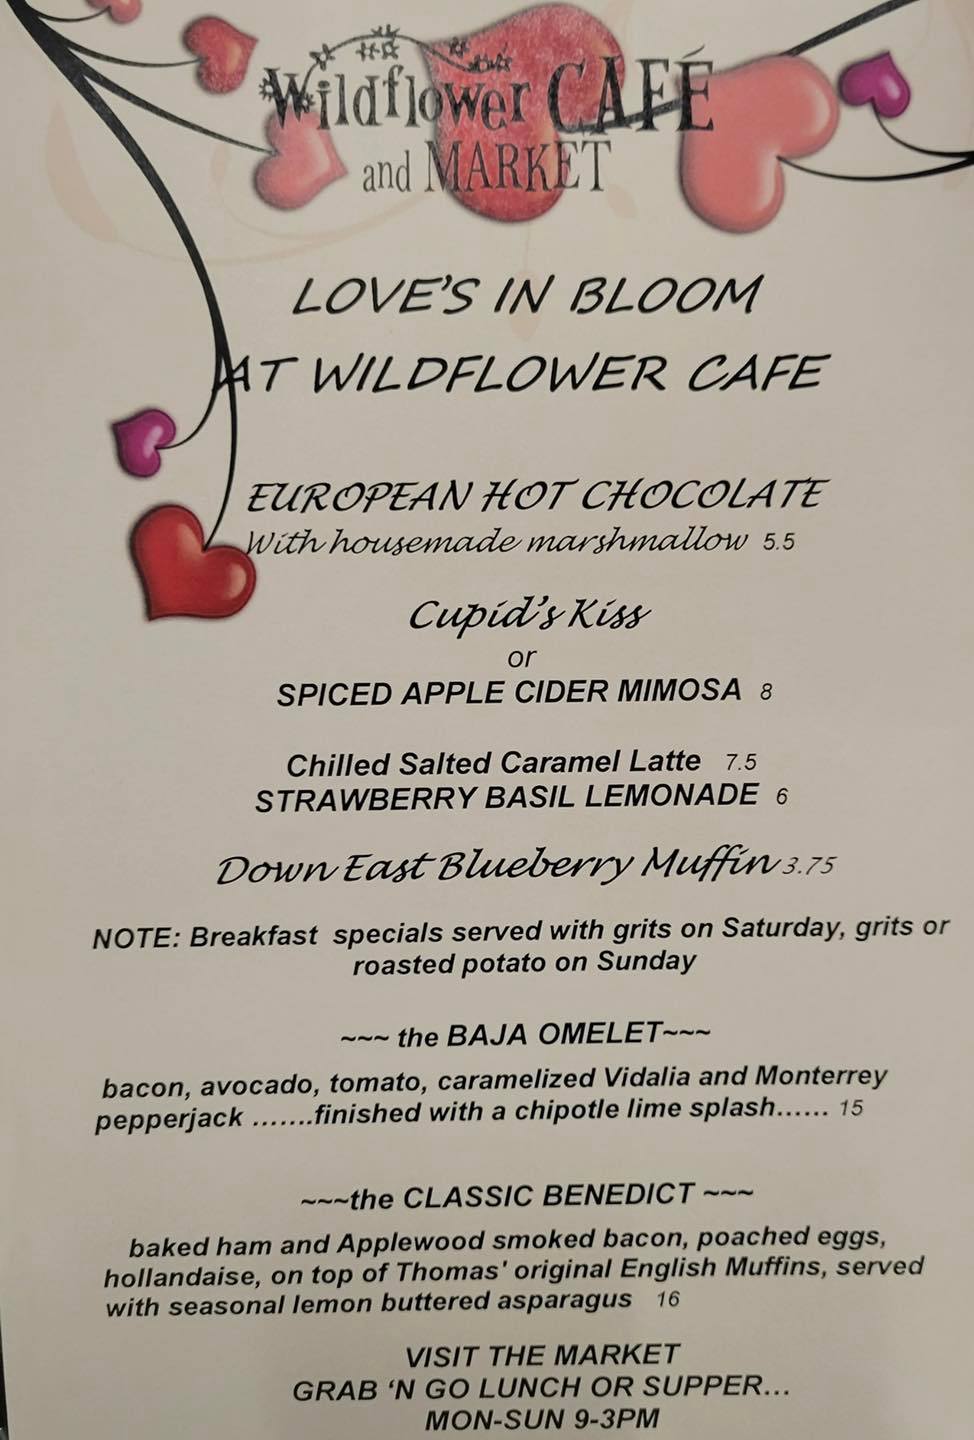 Wildflower CAFÉ
and MARKET
LOVE'S IN BLOOM
AT WILDFLOWER CAFE
EUROPEAN HOT CHOCOLATE
With housemade marshmallow 5.5
Cupid's Kiss
or
SPICED APPLE CIDER MIMOSA 8
Chilled Salted Caramel Latte 7.5
STRAWBERRY BASIL LEMONADE 6
Down East Blueberry Muffin 3.75
NOTE: Breakfast specials served with grits on Saturday, grits or
roasted potato on Sunday
~~~ the BAJA OMELET~~~
bacon, avocado, tomato, caramelized Vidalia and Monterrey
pepperjack .......finished with a chipotle lime splash...... 15
~~~the CLASSIC BENEDICT ~~~
baked ham and Applewood smoked bacon, poached eggs,
hollandaise, on top of Thomas' original English Muffins, served
with seasonal lemon buttered asparagus 16
VISIT THE MARKET
GRAB 'N GO LUNCH OR SUPPER...
MON-SUN 9-3PM